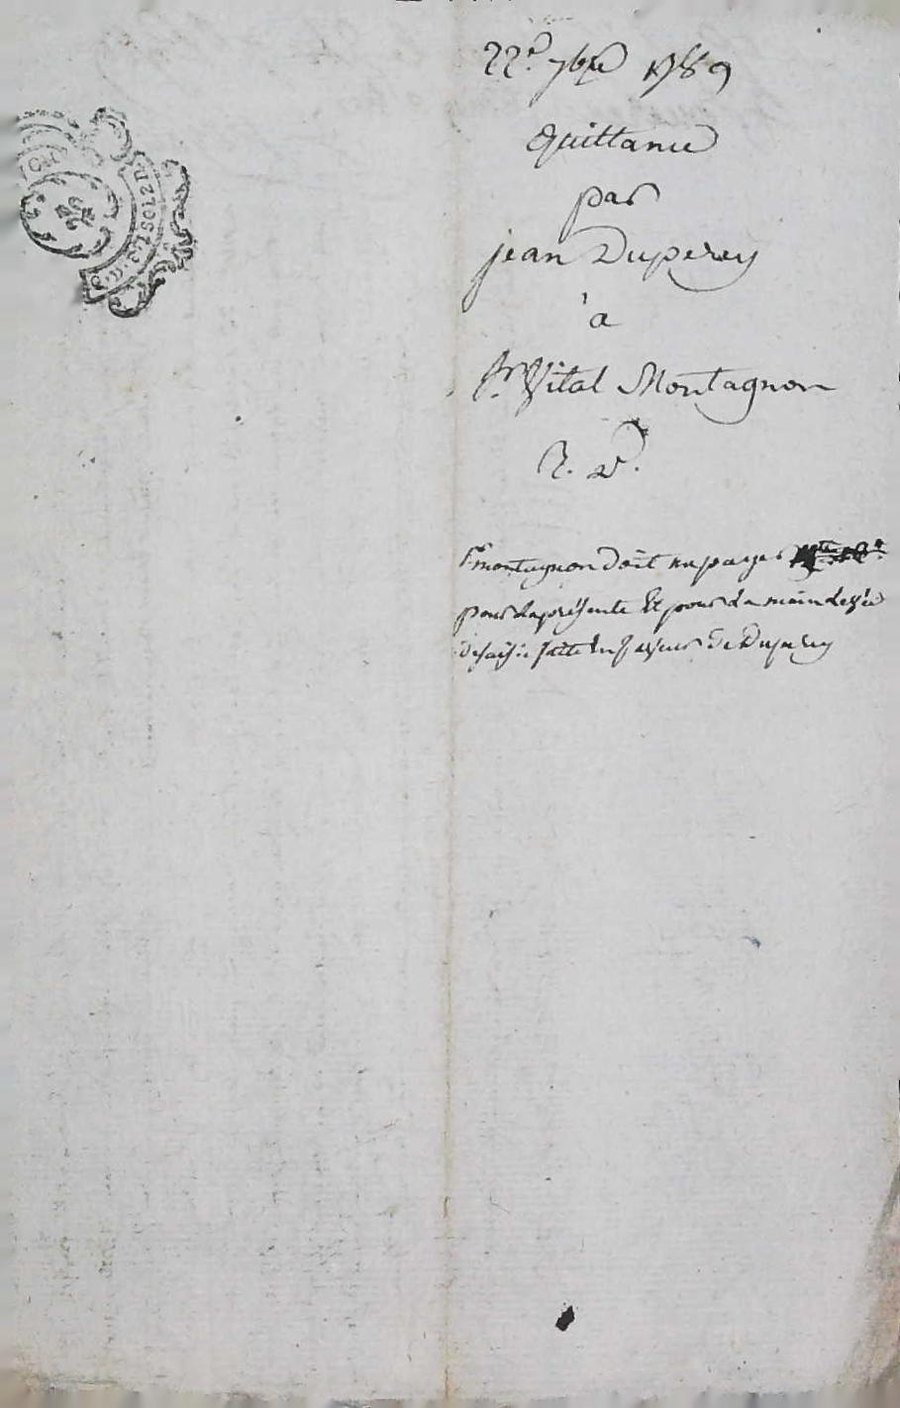 22.e 7bre 1789
Quittance
par
jean Duperey
à
Sr. Vital Montagnon
Sr montagnon doit me payer
pour la présente Et pour La main Levée
de saisie faite En faveur De Duperey